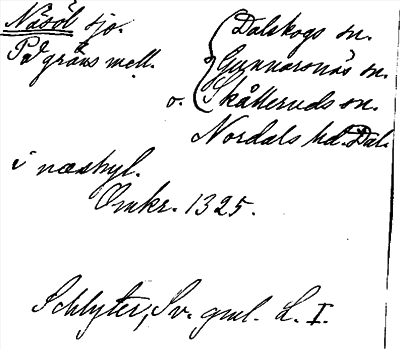 Näsöl sjö.
På gräns mell.
Dalskogs sn.
Gunnarsnäs sn.
o. Skålleruds sn.
Nordals hd. Dal.
i næshyl.
Omkr. 1325.
Schlyter, Sv. gml. L. I.